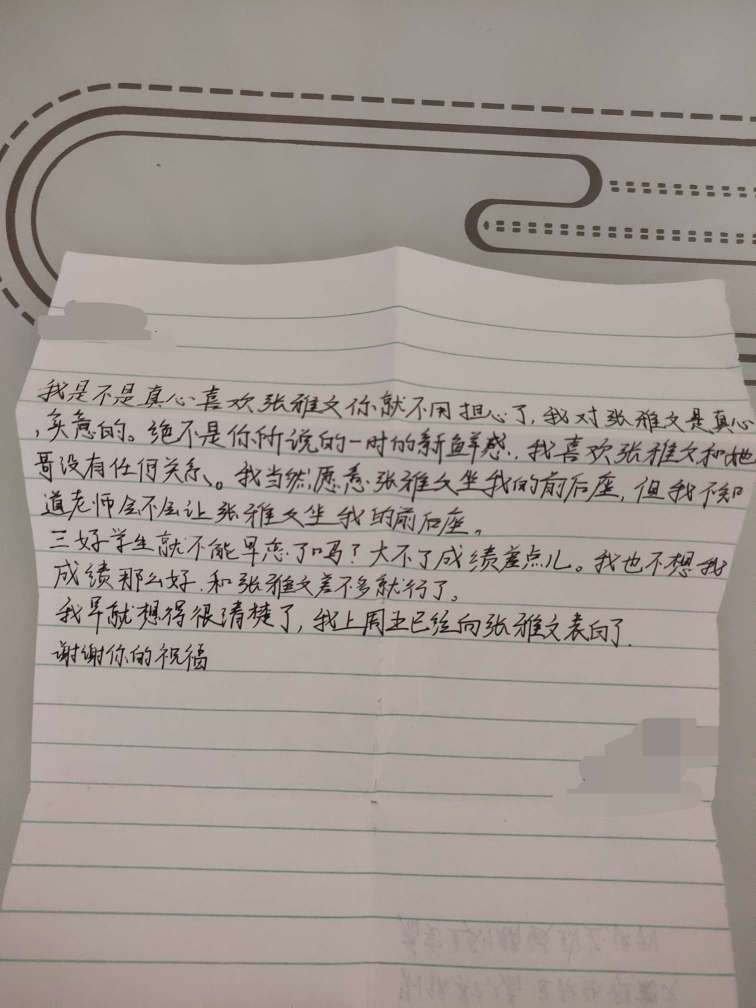 我是不是真心喜欢张雅文你就不用担心了,我对张雅文是真心
,实意的。绝不是你所说的一时的新鲜感,我喜欢张雅文和她
哥没有任何关系、。我当然愿意张雅文坐我的前后座,但我不知
道老师会不会让张雅文坐我的前后座。
三好学生就不能早恋了吗?大不了成绩差点儿。我也不想我
成绩那么好,和张雅文差不多就行了。
我早就想得很清楚了,我上周五已经向张雅文表白了.
谢谢你的祝福